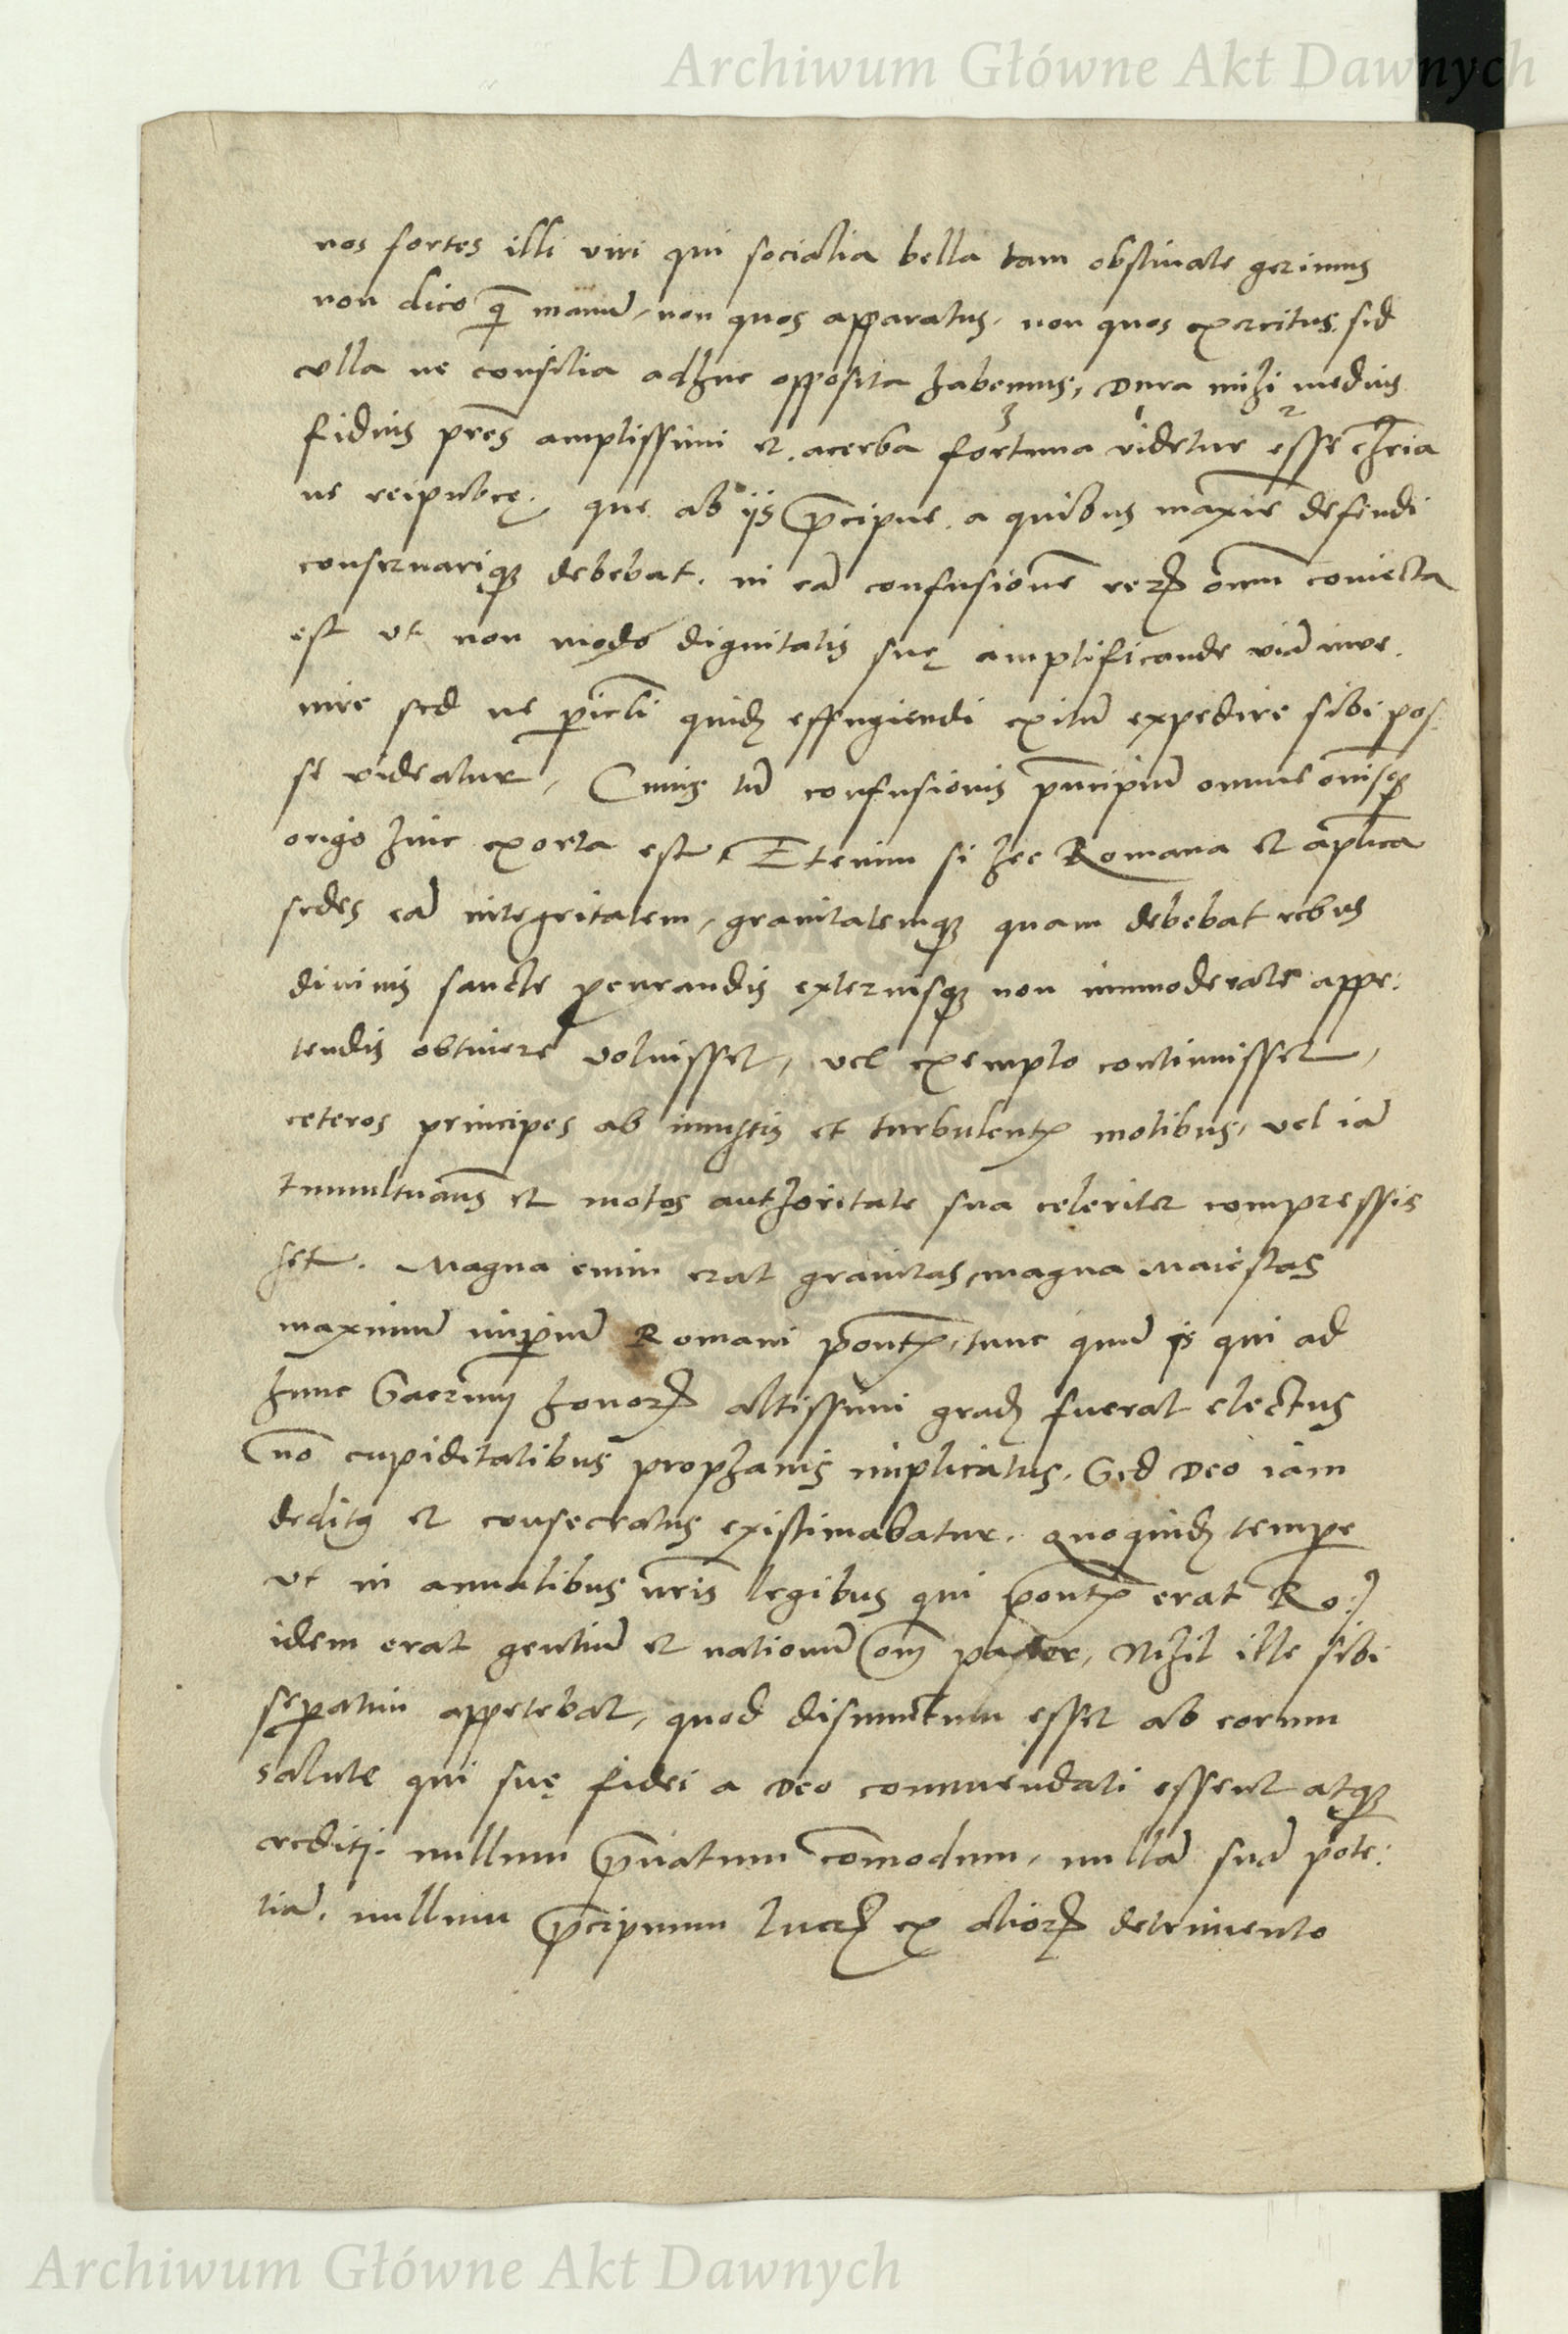 Archiwum Główne Akt Dawnych
nos fortes illi viri qui socialia bella tam obstinate gerimus
non dico qã manũ, non quos apparatus, non quos exercitus, sed
ulla ne consilia adhuc opposita habemus, Dura mihi medius
3 1 2
fidius pr̃es amplissimi et acerba fortuna videtur esse chr̃ia
ne reipub̃cę. que ab ijs p̃cipue a quibus maxĩe defendi
conservariq3 debebat. in eã confusionẽ rerꝝ om̃m coniecta
est ut non modo dignitatis suę amplificande viã inve.
nire sed ne pericl̃i quidẽ effugiendi exitũ expedire sibi pos:
se videatur, Cuius tñ confusionis p̃ncipiũ omne om̃isq3
origo hinc exorta est, Etenim si hec Romana et ap̃lica
sedes eã integritatem, gravitatemq3 quam debebat rebus
divinis sancte ꝓcurandis externisq3 non immoderate appe:
tendis obtinere voluisset, vel exemplo continuisset,
ceteros principes ab iniustis et turbulentꝭ motibus, vel iã
tumultuañs et motos authoritate sua celeriter compressis
set. Magna enim erat gravitas, magna Maiestas
maximũ imꝑiũ Romani pontꝭ, tunc quũ is qui ad
hunc Sacr̃um honorꝝ altissimi gradꝫ fuerat electus
nõ cupiditatibus prophanis implicatus. Sed Deo iam
deditꝯ et consecratus existimabatur. Quoquidẽ tempe
ut in annalibus nr̃is legibus qui pontꝭ erat Ro:
idem erat gentiũ et nationũ om̃ pater, Nihil ille sibi
seꝑatim appetebat, quod disiunctum esset ab eorum
salute qui suę fidei a Deo commendati essent atq3
creditj. nullum p̃vatum com̃odum, nullã suã pote:
tiã. nullum p̃cipuum lucrꝝ ex aliorꝝ detrimento
Archiwum Główne Akt Dawnych